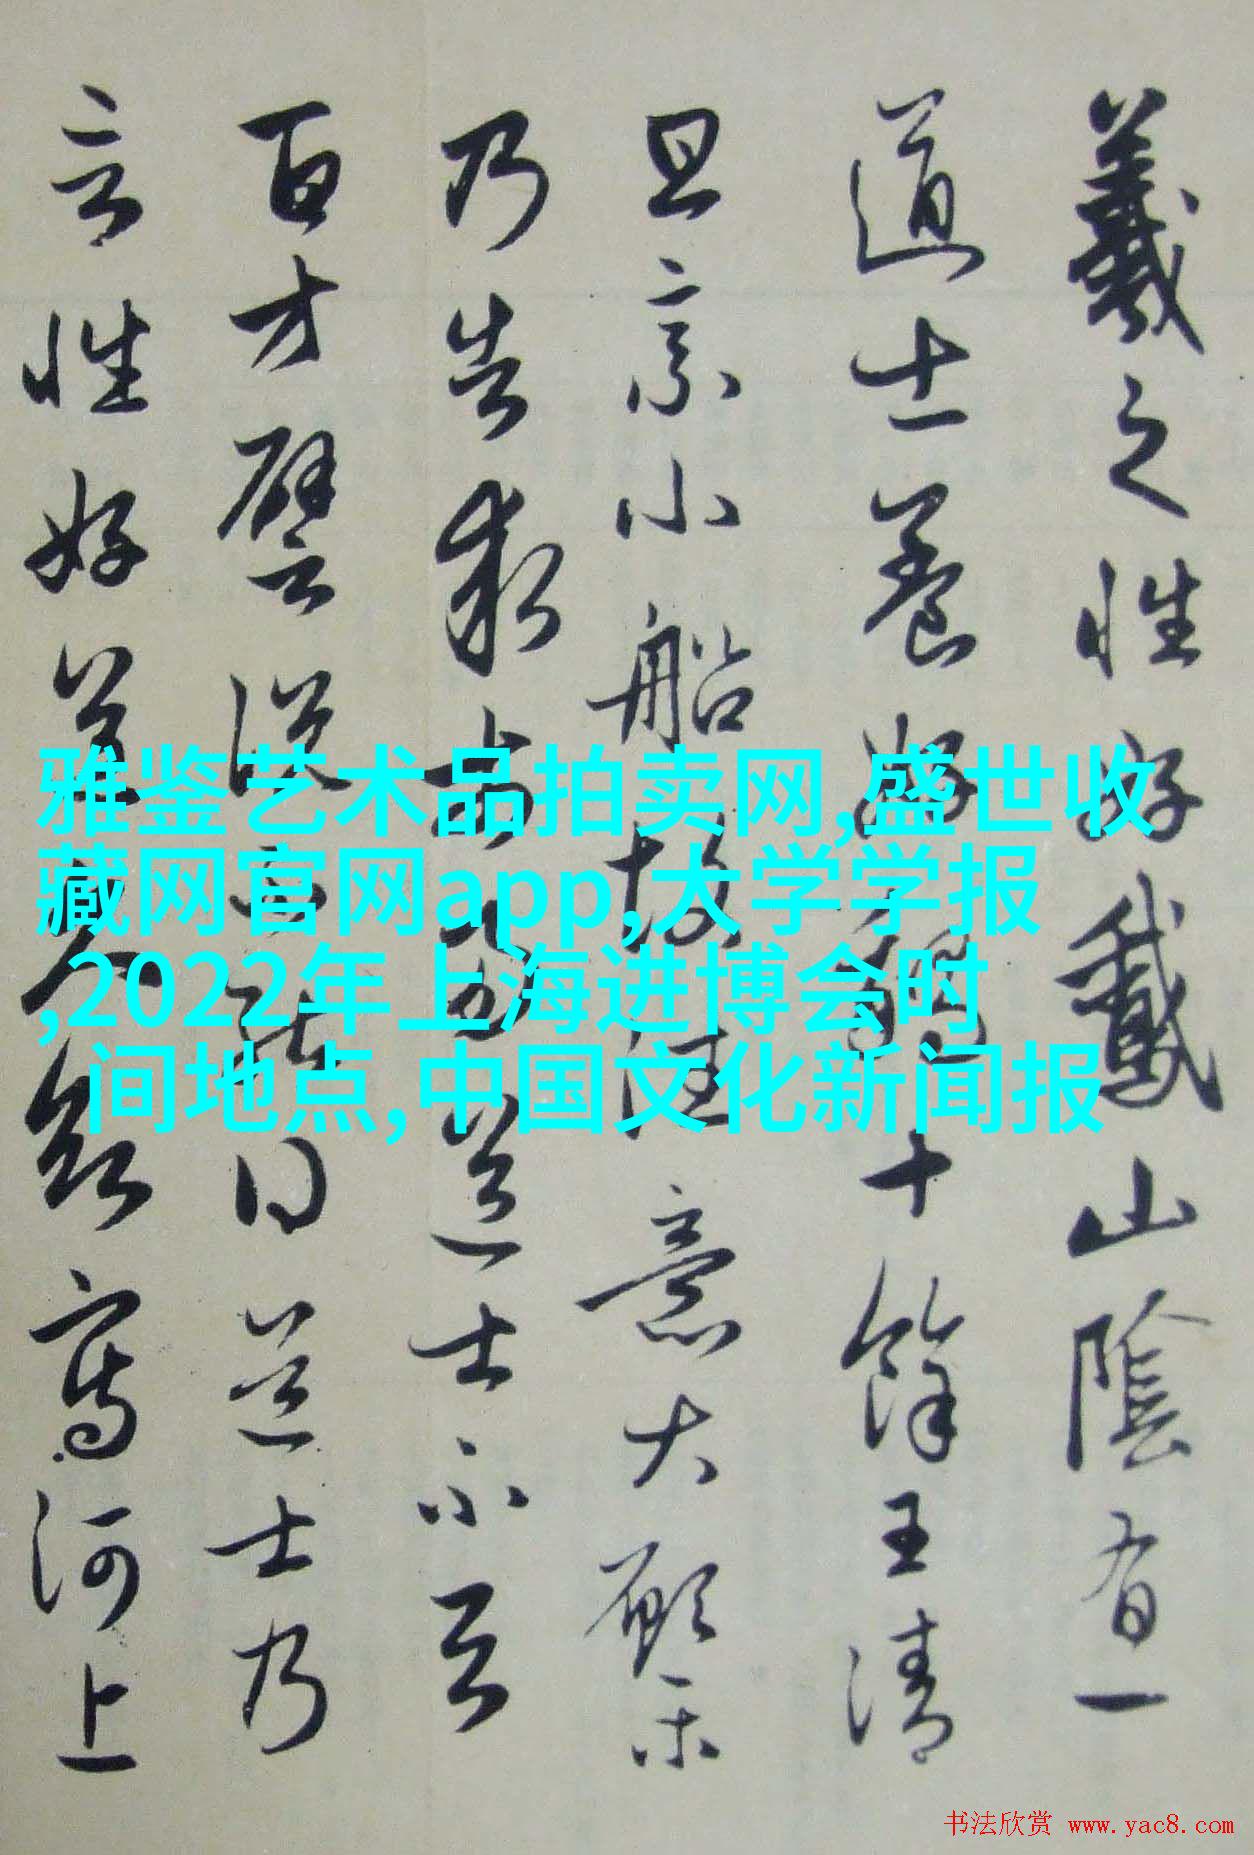 羲之性好鵞山陰有一
道士養好鵞十餘王清
旦乘小船故往意大願樂
乃告求市易道士不与
百方譬説不能得道士乃
言性好道久欲寫河上
雅鉴艺术品拍卖网,盛世收
藏网官网app,大学学报
,2022年上海进博会时
间地点,中国文化新闻报
书法欣赏 www.yac8.com